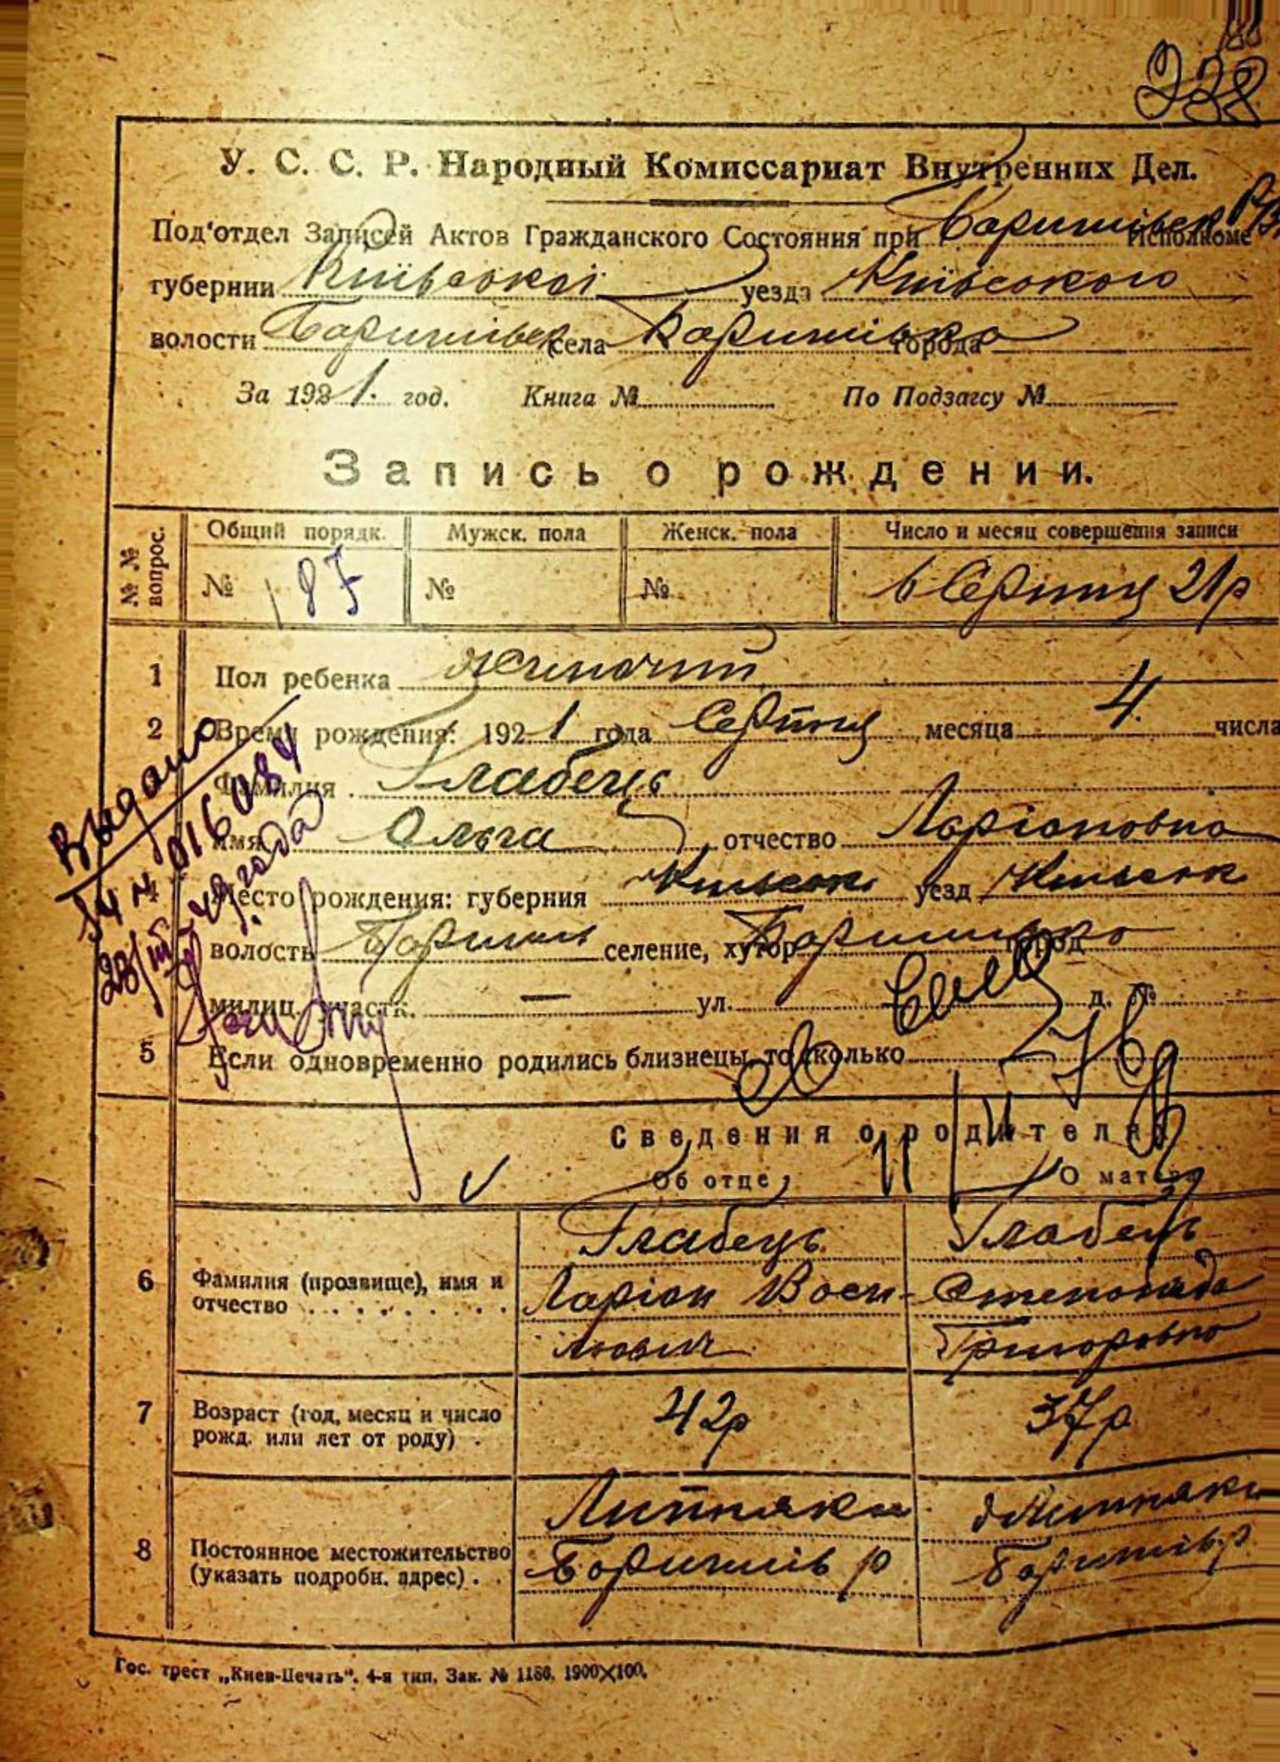 238
У. С. С. Р. Народный Комиссариат Внутренних Дел.
Под'отдел Записей Актов Гражданского Состояния при Баришівськ Исполкоме
губернии Київської уезда Київського
волости Баришівськ села Баришівка города
За 1921. год. Книга № По Подзагсу №
Запись о рождении.
№ № вопрос. Общий порядк. Мужск. пола Женск. пола Число и месяц совершения записи
№ 187 № № 6 Серпня 21р
1 Пол ребенка жиночий
2 Время рождения: 1921 года Серпня месяца 4 числа
Фамилия Глабець
имя Ольга отчество Ларіоновна
Место рождения: губерния Київськ уезд Київськ
волость Бориш селение, хутор Баришівка город
милиц. участк. — ул. д. №
5 Если одновременно родились близнецы, то сколько
Выдано
23/III 49 года
Сведения о родителях
Об отце О матери
6 Фамилия (прозвище), имя и отчество
Глабець Глабець
Ларіон Воси- Степонида
льович Григоровна
7 Возраст (год, месяц и число рожд. или лет от роду)
42р 37р
8 Постоянное местожительство (указать подробн. адрес)
Липняки Липняки
Баришів р Баришів р
Гос. трест „Киев-Печать". 4-я тип. Зак. № 1186. 1900X100.